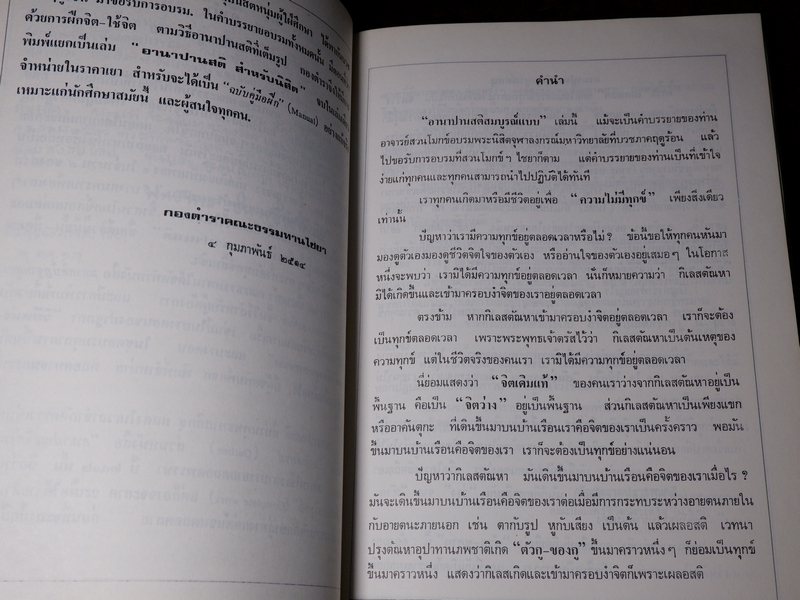 มาขอรับการอบรม. ในคำบรรยายอบรมทั้งหมดนั้น
ด้วยการฝึกจิต-ใช้จิต ตามวิธีอานาปานสติที่เต็มรูป
พิมพ์แยกเป็นเล่ม "อานาปานสติ สำหรับนิสิต"
จำหน่ายในราคาเยา สำหรับจะได้เป็น "ฉบับคู่มือฝึก" (Manual)
เหมาะแก่นักศึกษาสมัยนี้ และผู้สนใจทุกคน.
กองตำราคณะธรรมทานไชยา
๔ กุมภาพันธ์ ๒๕๑๔
คำนำ
"อานาปานสติสมบูรณ์แบบ" เล่มนี้ แม้จะเป็นคำบรรยายของท่าน
อาจารย์สวนโมกข์อบรมพระนิสิตจุฬาลงกรณ์มหาวิทยาลัยที่บวชภาคฤดูร้อน แล้ว
ไปขอรับการอบรมที่สวนโมกข์ฯ ไชยาก็ตาม แต่คำบรรยายของท่านเป็นที่เข้าใจ
ง่ายแก่ทุกคนและทุกคนสามารถนำไปปฏิบัติได้ทันที
เราทุกคนเกิดมาหรือมีชีวิตอยู่เพื่อ "ความไม่มีทุกข์" เพียงสิ่งเดียว
เท่านั้น
ปัญหาว่าเรามีความทุกข์อยู่ตลอดเวลาหรือไม่ ? ข้อนี้ขอให้ทุกคนหันมา
มองดูตัวเองมองดูชีวิตจิตใจของตัวเอง หรืออ่านใจของตัวเองอยู่เสมอๆ ในโอกาส
หนึ่งจะพบว่า เรามิได้มีความทุกข์อยู่ตลอดเวลา นั่นก็หมายความว่า กิเลสตัณหา
มิได้เกิดขึ้นและเข้ามาครอบงำจิตของเราอยู่ตลอดเวลา
ตรงข้าม หากกิเลสตัณหาเข้ามาครอบงำจิตอยู่ตลอดเวลา เราก็จะต้อง
เป็นทุกข์ตลอดเวลา เพราะพระพุทธเจ้าตรัสไว้ว่า กิเลสตัณหาเป็นต้นเหตุของ
ความทุกข์ แต่ในชีวิตจริงของคนเรา เรามิได้มีความทุกข์อยู่ตลอดเวลา
นี่ย่อมแสดงว่า "จิตเดิมแท้" ของคนเราว่างจากกิเลสตัณหาอยู่เป็น
พื้นฐาน คือเป็น "จิตว่าง" อยู่เป็นพื้นฐาน ส่วนกิเลสตัณหาเป็นเพียงแขก
หรืออาคันตุกะ ที่เดินขึ้นมาบนบ้านเรือนเราคือจิตของเราเป็นครั้งคราว พอมัน
ขึ้นมาบนบ้านเรือนคือจิตของเรา เราก็จะต้องเป็นทุกข์อย่างแน่นอน
ปัญหาว่ากิเลสตัณหา มันเดินขึ้นมาบนบ้านเรือนคือจิตของเราเมื่อไร ?
มันจะเดินขึ้นมาบนบ้านเรือนคือจิตของเราต่อเมื่อมีการกระทบระหว่างอายตนภายใน
กับอายตนะภายนอก เช่น ตากับรูป หูกับเสียง เป็นต้น แล้วเผลอสติ เวทนา
ปรุงตัณหาอุปาทานภพชาติเกิด "ตัวกู-ของกู" ขึ้นมาคราวหนึ่งๆ ก็ย่อมเป็นทุกข์
ขึ้นมาคราวหนึ่ง แสดงว่ากิเลสเกิดและเข้ามาครอบงำจิตก็เพราะเผลอสติ